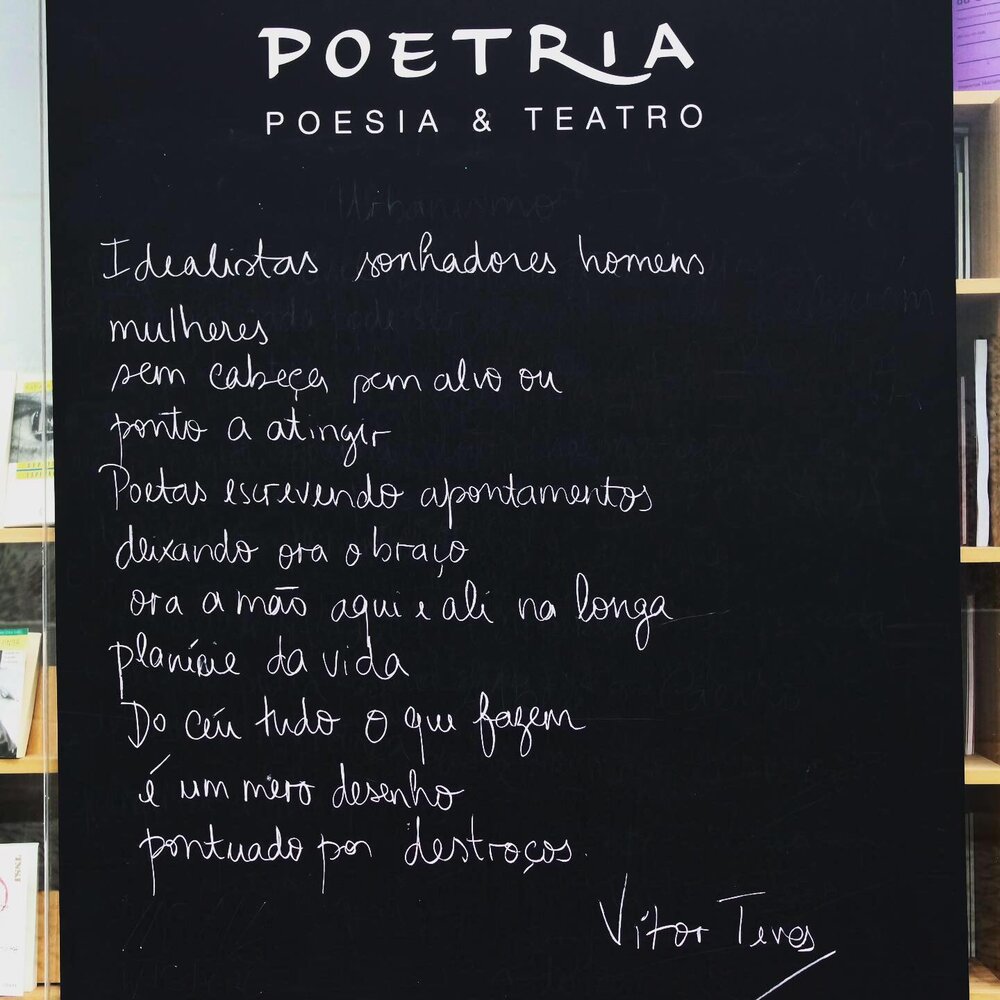 POETRIA
POESIA & TEATRO
Urbanismo
Idealistas sonhadores homens
mulheres
sem cabeça sem alvo ou
ponto a atingir
Poetas escrevendo apontamentos
deixando ora o braço
ora a mão aqui e ali na longa
planície da vida
Do céu tudo o que fazem
é um mero desenho
pontuado por destroços.
Vítor Teves